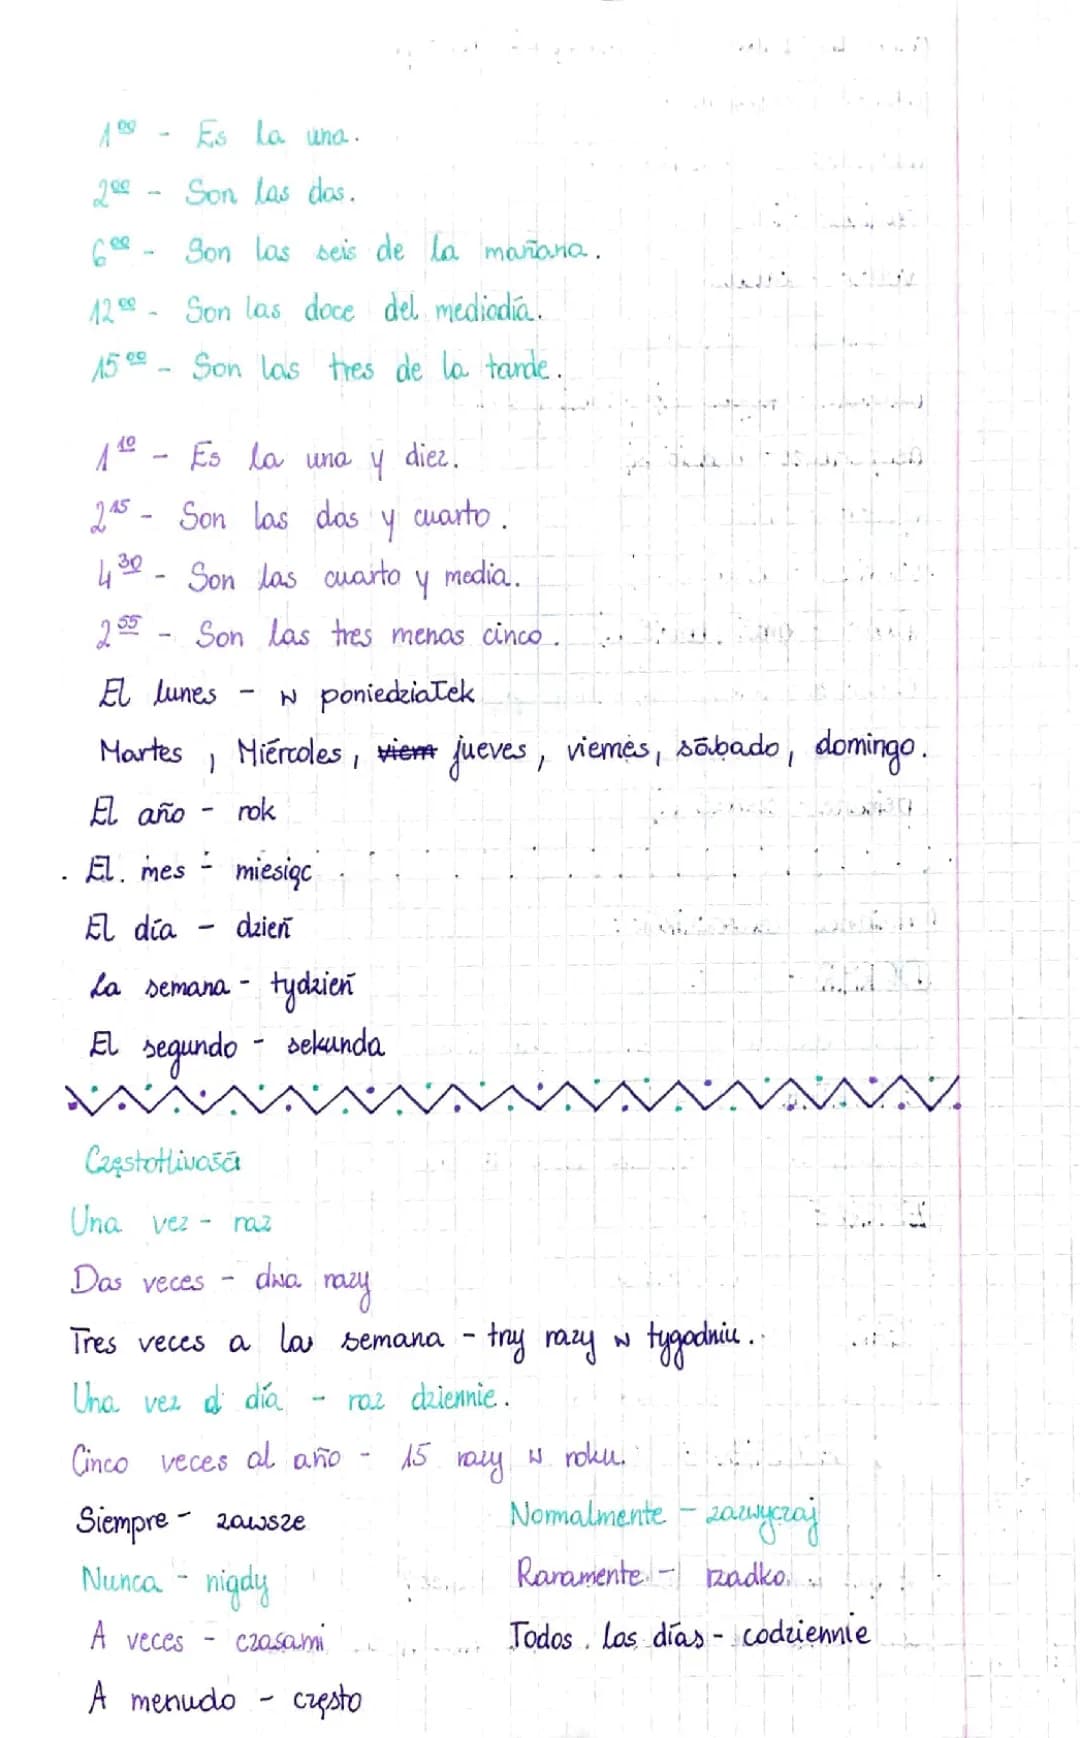 1⁰⁰ - Es la una.
2⁰⁰ - Son las dos.
6⁰⁰ - Son las seis de la mañana.
12⁰⁰ - Son las doce del mediodía.
15⁰⁰ - Son las tres de la tarde.
1¹⁰ - Es la una y diez.
2¹⁵ - Son las dos y cuarto.
4³⁰ - Son las cuarto y media.
2⁵⁵ - Son las tres menos cinco.
El lunes - w poniedziałek
Martes, Miércoles, viern jueves, viernes, sábado, domingo.
El año - rok
El mes - miesiąc
El día - dzień
La semana - tydzień
El segundo - sekunda
Częstotliwość
Una vez - raz
Dos veces - dwa razy
Tres veces a la semana - trzy razy w tygodniu.
Una vez al día - raz dziennie.
Cinco veces al año - 15 razy w roku.
Siempre - zawsze
Normalmente - zazwyczaj
Nunca - nigdy
Raramente - rzadko
A veces - czasami
Todos los días - codziennie
A menudo - często